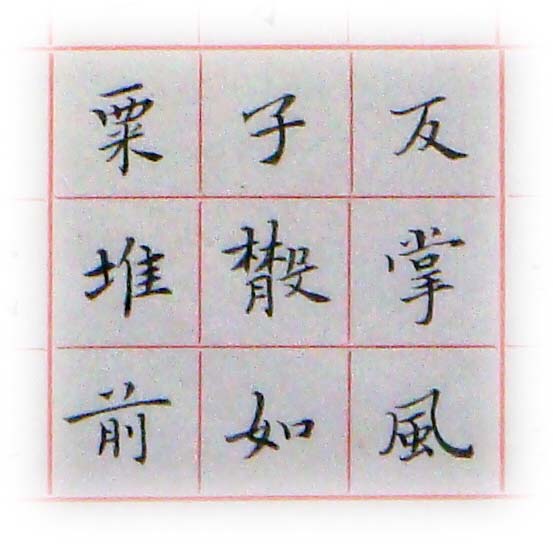 反掌風
子散如
粟堆前